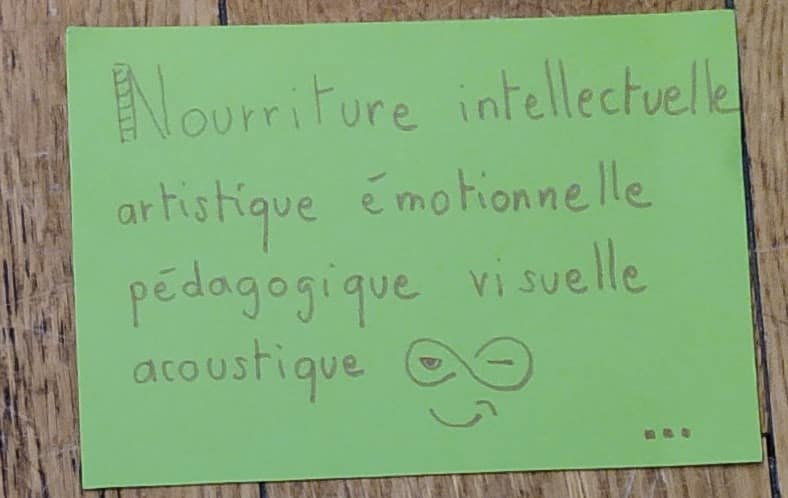 Nourriture intellectuelle
artistique émotionnelle
pédagogique visuelle
acoustique
...